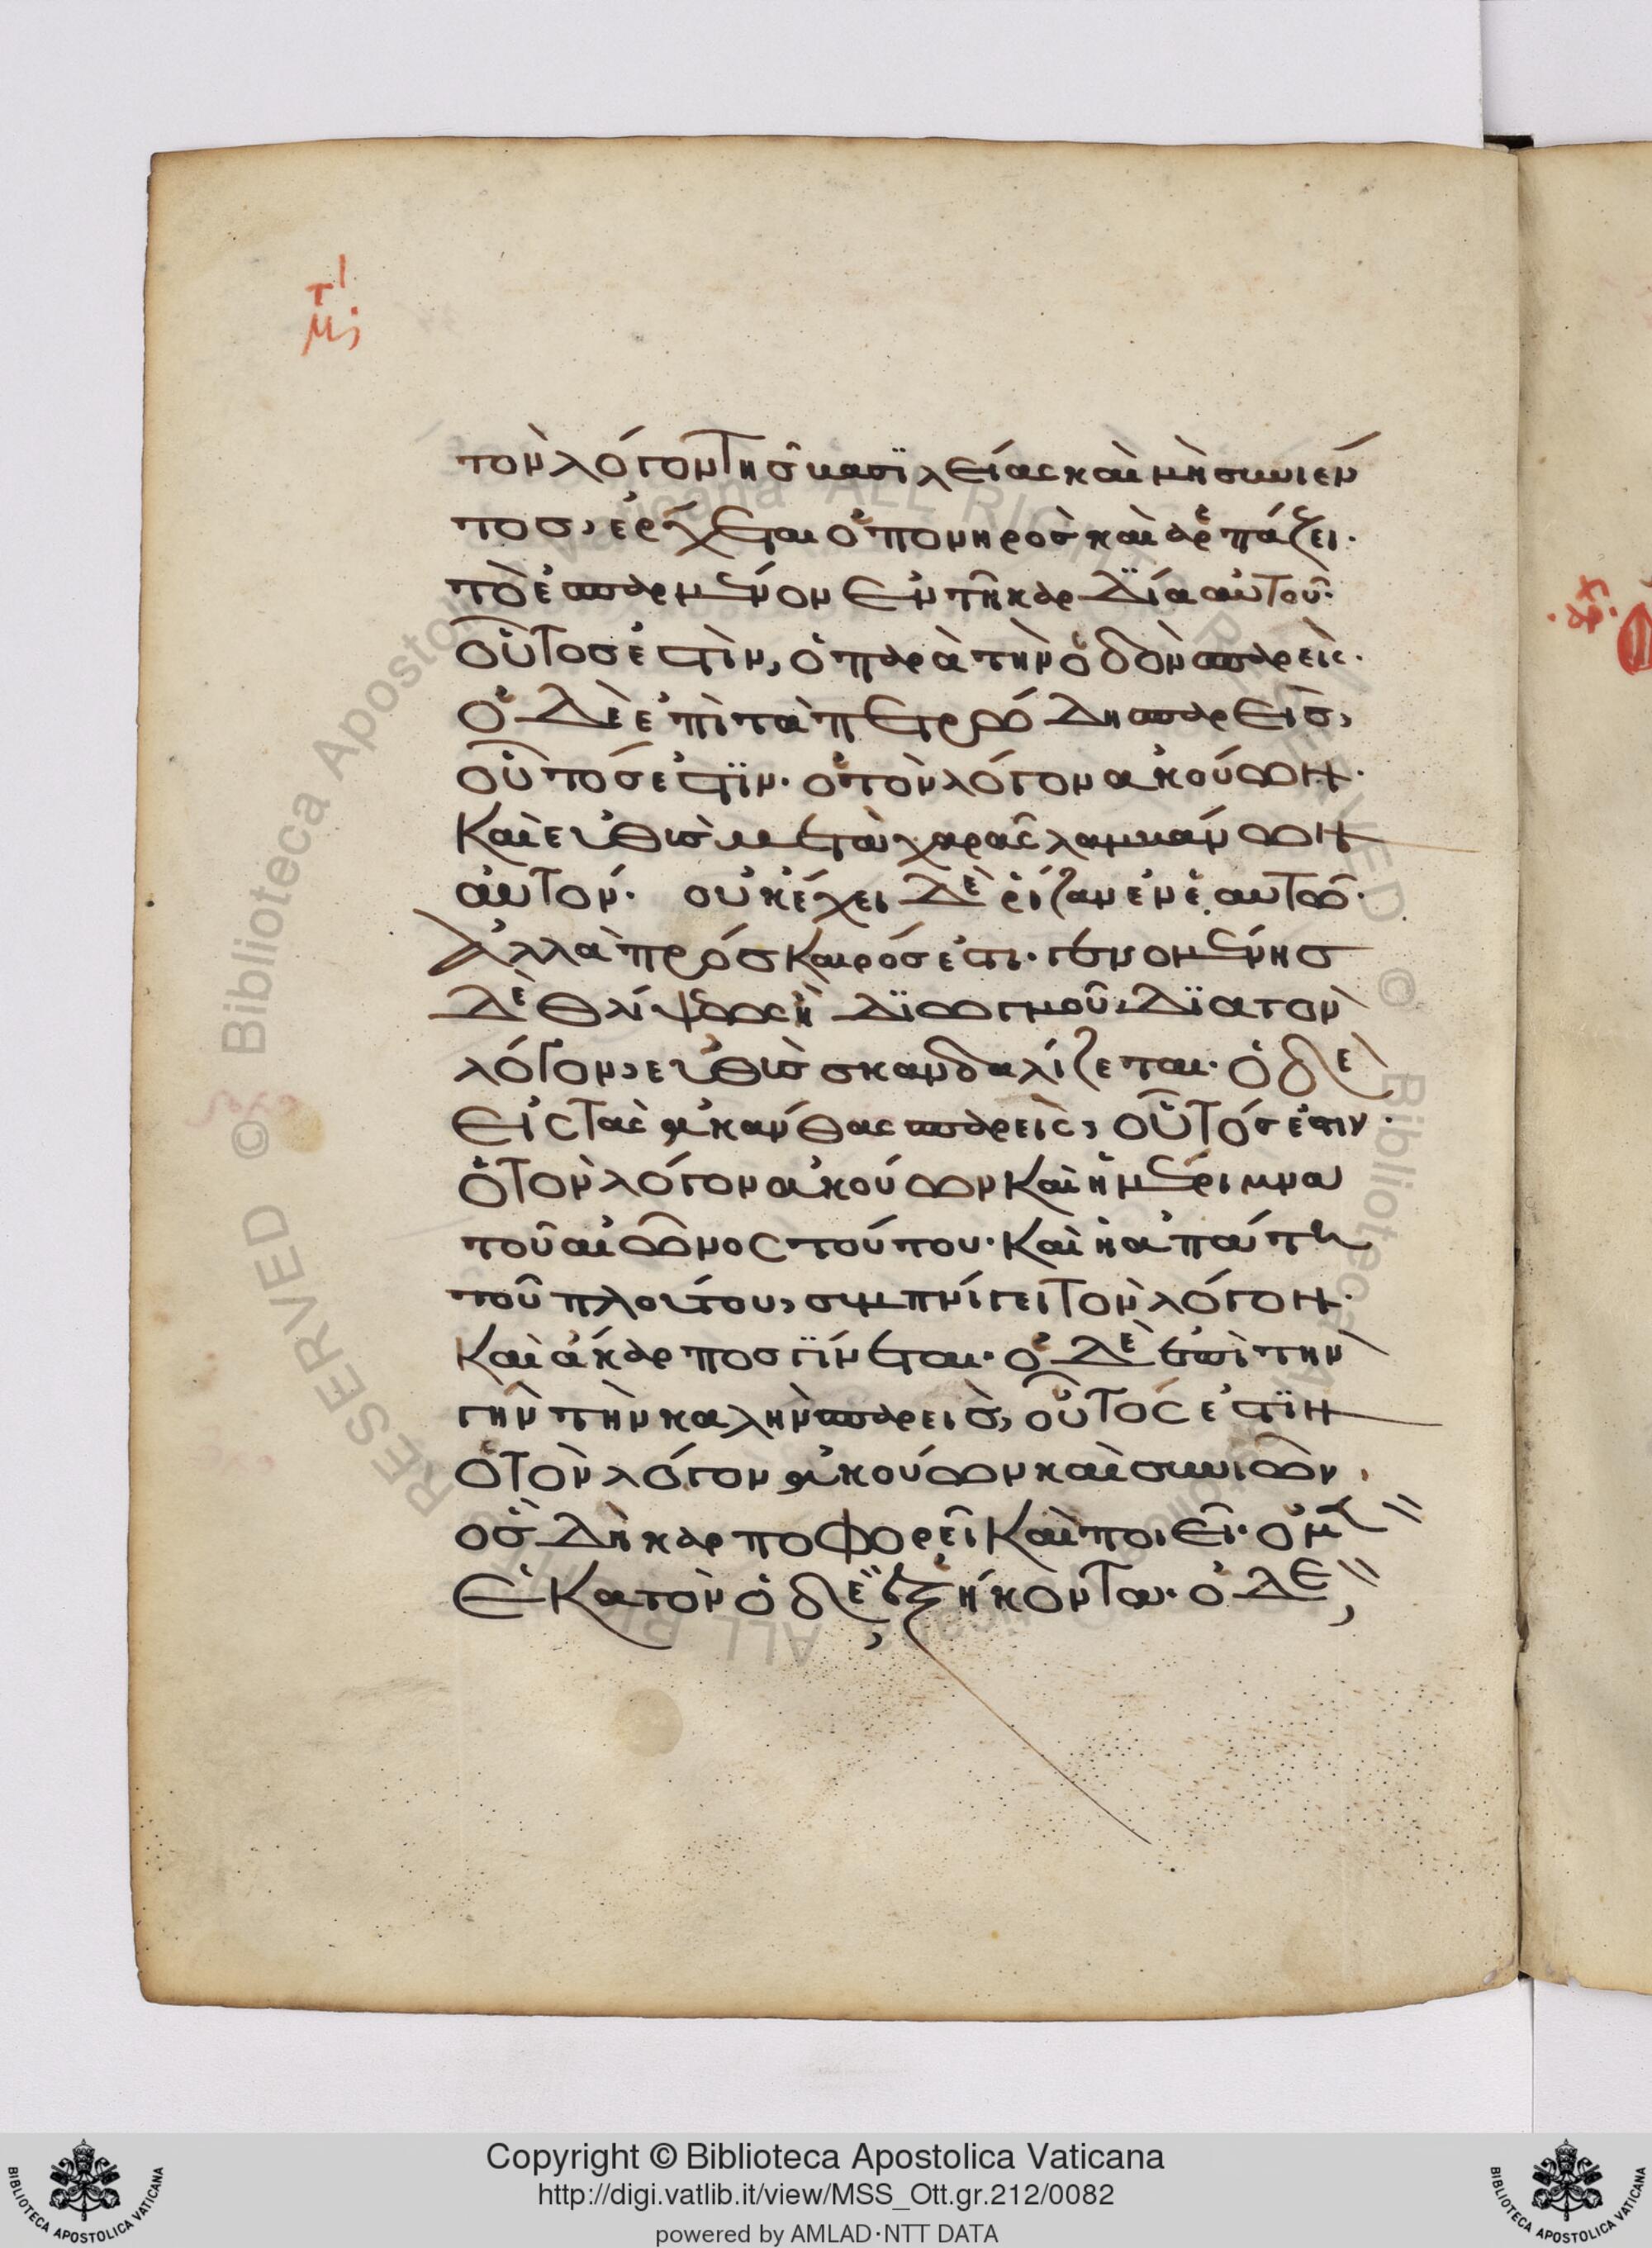 τὸν λόγον τῆς βασϊλείας καὶ μὴ συνιέν
τος, ἔρχεται ὁ πονηρὸς καὶ ἁρπάζει·
τὸ ἐσπαρμένον ἐν τῆ καρδΐα αὐτοῦ·
οὗτος ἐστὶν, ὁ παρὰ τὴν ὁδὸν σπαρεὶς·
ὁ δὲ ἐπὶ τὰ πετρώδη σπαρεὶς,
οὗτός ἐστϊν· ὁ τὸν λόγον ἀκούων·
Καὶ εὐθὺς μετὰ χαρᾶς λαμβάνων
αὐτόν· οὐκ έχει δὲ ρίζαν ἐν ἑαυτῶ·
ἀλλὰ πρόσκαιρός ἐστι· γενομένης
δὲ θλίψεως ἢ δϊωγμοῦ δϊα τὸν
λόγον, εὐθὺς σκανδαλίζεται· ὁ δὲ
εἰς τὰς ἀκάνθας σπαρεὶς, οὗτός ἐστιν·
ὁ τὸν λόγον ἀκούων Καὶ ἡ μέριμνα
τοῦ αἰῶνος τούτου· Καὶ ἡ ἀπάτη
τοῦ πλούτου, συμπνίγει τὸν λόγον·
Καὶ ἄκαρπος γΐνεται· ὁ δὲ ἐπὶ τὴν
γῆν τὴν καλὴν σπαρεὶς, οὗτός ἐστϊν
ὁ τὸν λόγον ἀκούων καὶ συνιῶν·
ὃς δὴ καρποφορεῖ Καὶ ποιεῖ· ὁ μὲν
ἑκατὸν ὁ δὲ ἑξήκοντα· ὁ δὲ,
Copyright © Biblioteca Apostolica Vaticana
http://digi.vatlib.it/view/MSS_Ott.gr.212/0082
powered by AMLAD·NTT DATA